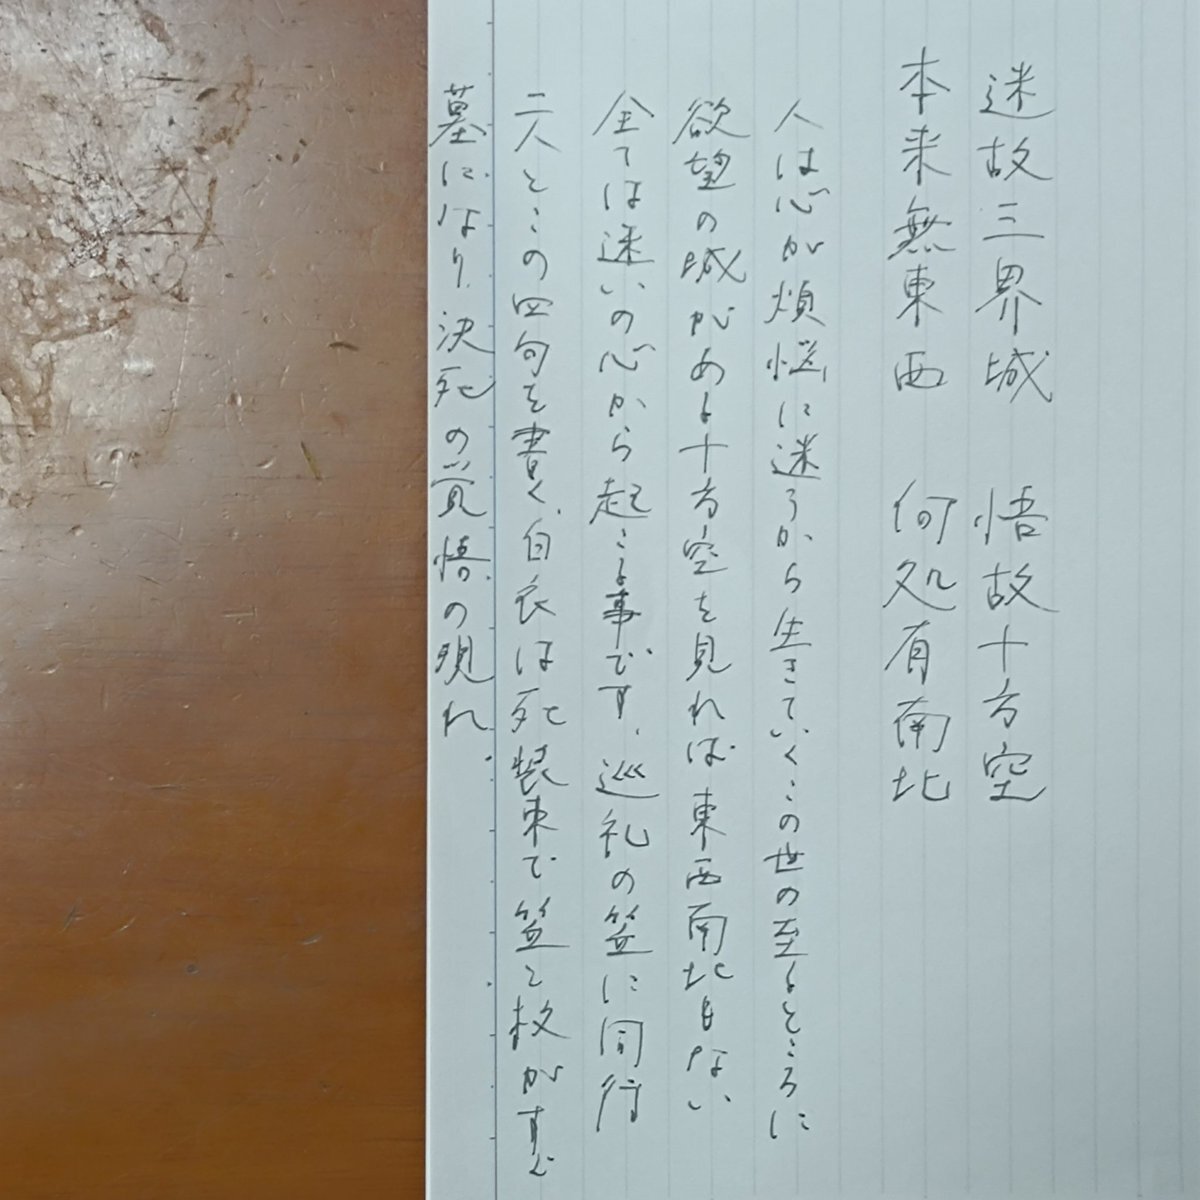 迷故三界城　悟故十方空
本来無東西　何処有南北
人は心が煩悩に迷うから生きていくこの世の至るところに
欲望の城がある十方空を見れば東西南北もない
全ては迷いの心から起こる事です、巡礼の笠に同行
二人とこの四句を書く、白衣は死装束で笠と杖がすぐ
墓になり、決死の覚悟の現れ。